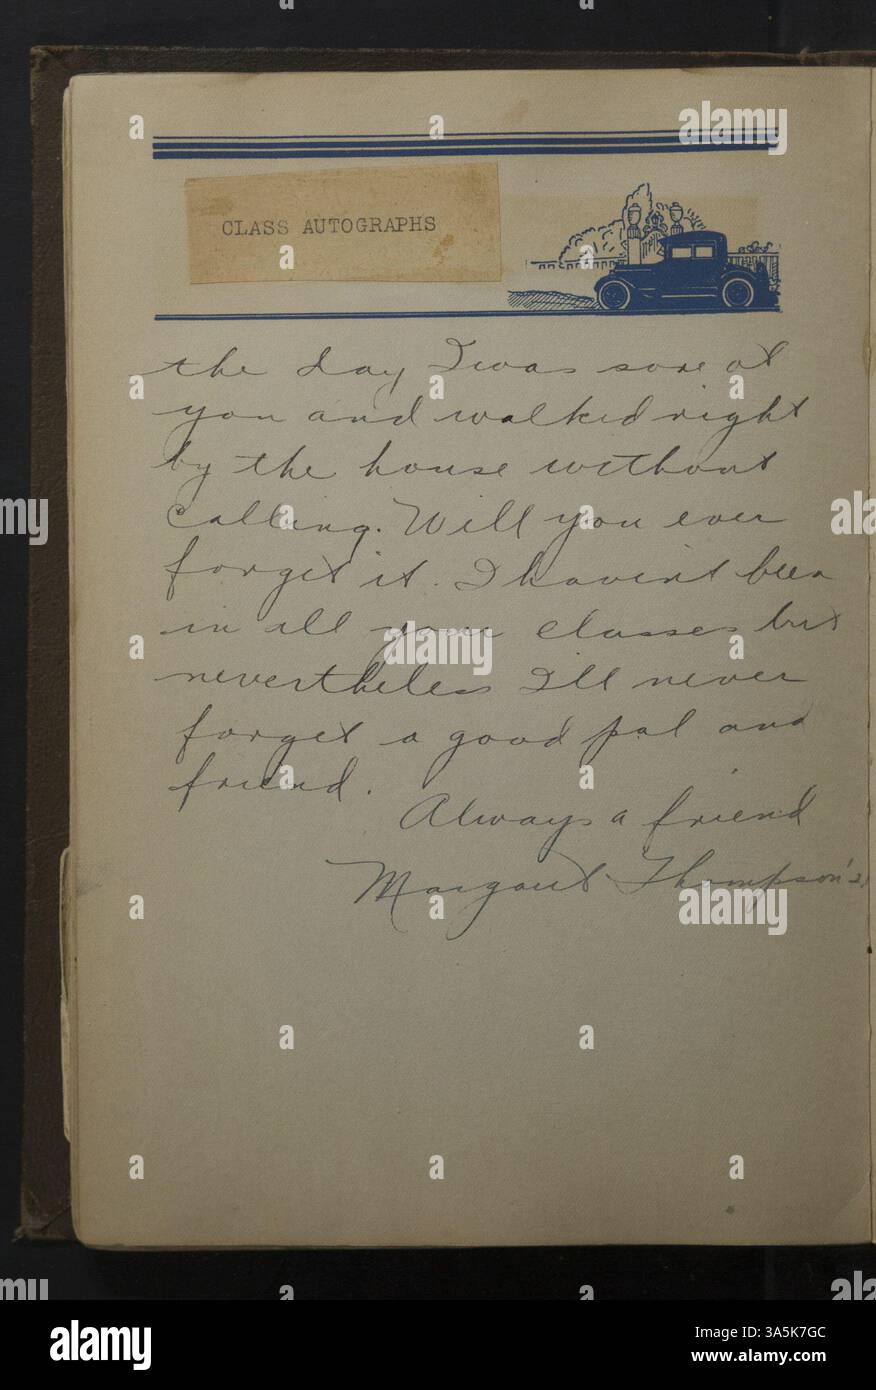 CLASS AUTOGRAPHS
the day I was sore at
you and walked right
by the house without
calling. Will you ever
forget it. I haven't been
in all your classes but
nevertheless I'll never
forget a good pal and
friend.
Always a friend
Margaret Thompson
alamy
Image ID: 3A5K7GC
www.alamy.com